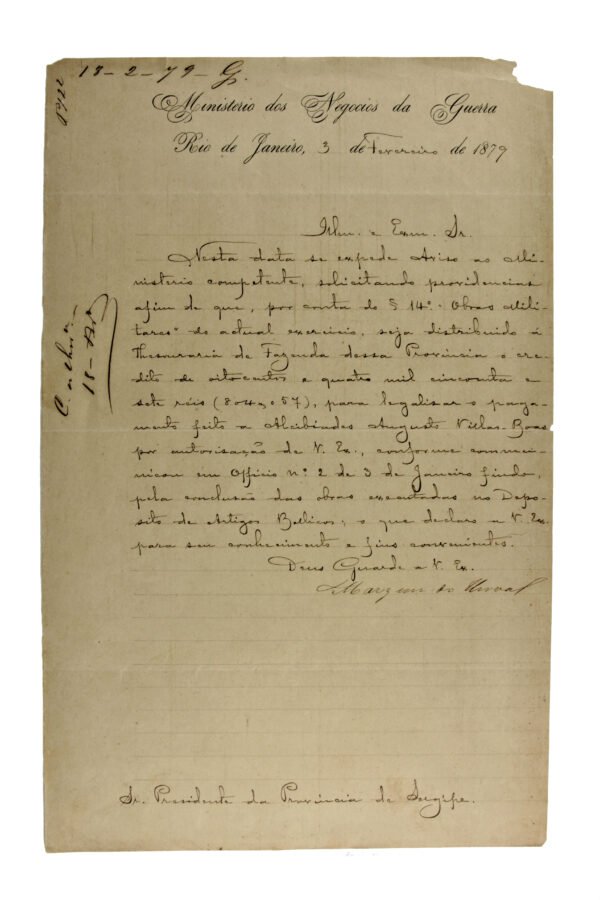 13-2-79-G.
Ministerio dos Negocios da Guerra
Rio de Janeiro, 3 de Fevereiro de 1879
Illm. e Exm. Sr.
Nesta data se expede Aviso ao Mi-
nisterio competente, solicitando providencias
afim de que, por conta do § 14º "Obras Mili-
tares" do actual exercicio, seja distribuido á
Thesouraria de Fazenda dessa Provincia o cre-
dito de oitocentos e quatro mil cincoenta e
sete réis (804$057), para legalisar o paga-
mento feito a Alcibiades Augusto Villas-Boas
por autorisação de V. Ex., conforme commu-
nicou em Officio nº 2 de 3 de Janeiro findo,
pela conclusão das obras executadas no Depo-
sito de Artigos Bellicos; o que declaro a V. Ex.
para seu conhecimento e fins convenientes.
Deus Guarde a V. Ex.
Marquez do Herval
Sr. Presidente da Provincia de Sergipe.